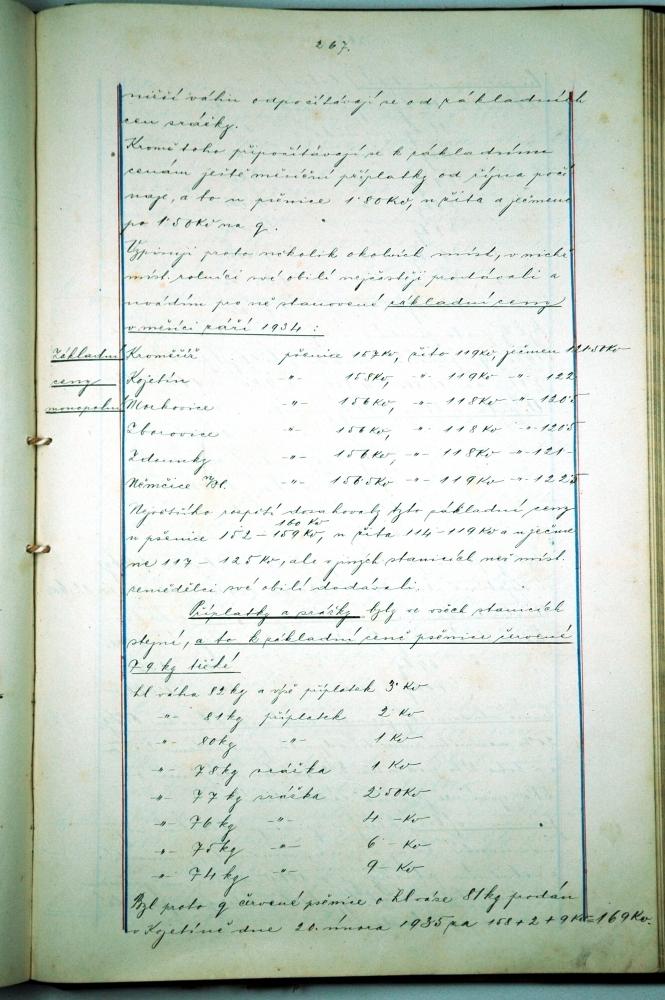 267.
nižší váhu odpočítávají se od základních
cen srážky.
Kromě toho připočítávají se k základním
cenám ještě měsíční příplatky od října počí
naje, a to u pšenice 1·80 Kč, u žita a ječmene
po 1·50 Kč na q.
Vypisuji proto několik okolních míst, v nichž
míst. rolníci své obilí nejčastěji prodávali a
uvádím pro ně stanovené základní ceny
v měsíci září 1934 :
Základní
ceny
monopolní
Kroměříž pšenice 157 Kč, žito 119 Kč, ječmen 121·50 Kč
Kojetín -"- 158 Kč, -"- 119 Kč -"- 122
Morkovice -"- 156 Kč, -"- 118 Kč -"- 120·5
Zborovice -"- 156 Kč, -"- 118 Kč -"- 120·5
Zdounky -"- 156 Kč, -"- 118 Kč -"- 121-
Němčice n/H. -"- 156·5 Kč -"- 119 Kč -"- 122·5
Největšího rozpětí dosahovaly tyto základní ceny
160 Kč
u pšenice 152 – 159 Kč, u žita 114 – 119 Kč a u ječme
ne 117 – 125 Kč, ale v jiných stanicích než míst.
zemědělci své obilí dodávali.
Příplatky a srážky byly ve všech stanicích
stejné, a to k základní ceně pšenice červené
79 kg těžké
hl váha 82 kg a výše příplatek 3· Kč
-"- 81 kg příplatek 2· Kč
-"- 80 kg -"- 1 Kč
-"- 78 kg srážka 1 Kč
-"- 77 kg srážka 2·50 Kč
-"- 76 kg -"- 4 – Kč
-"- 75 kg -"- 6 – Kč
-"- 74 kg -"- 9 – Kč
Byl proto q červené pšenice o hl váze 81 kg prodán
v Kojetíně dne 20. února 1935 za 158 + 2 + 9 Kč = 169 Kč.